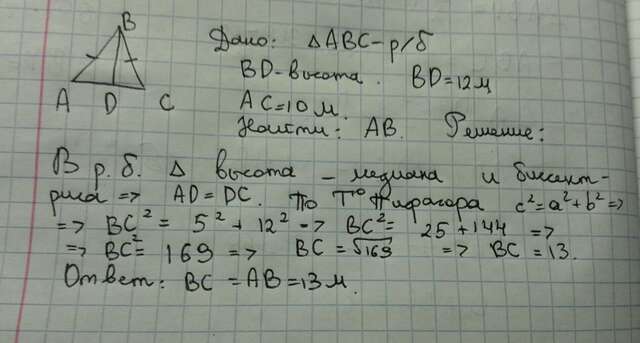 B
A D C
Дано: △ABC-р/б
BD-высота. BD=12м
AC=10м.
Найти: AB. Решение:
В р.б. △ высота – медиана и биссект-
риса => AD=DC. По Т° Пифагора c²=a²+b² =>
=> BC² = 5² + 12² => BC² = 25+144 =>
=> BC² = 169 => BC = √169 => BC = 13.
Ответ: BC = AB = 13 м.